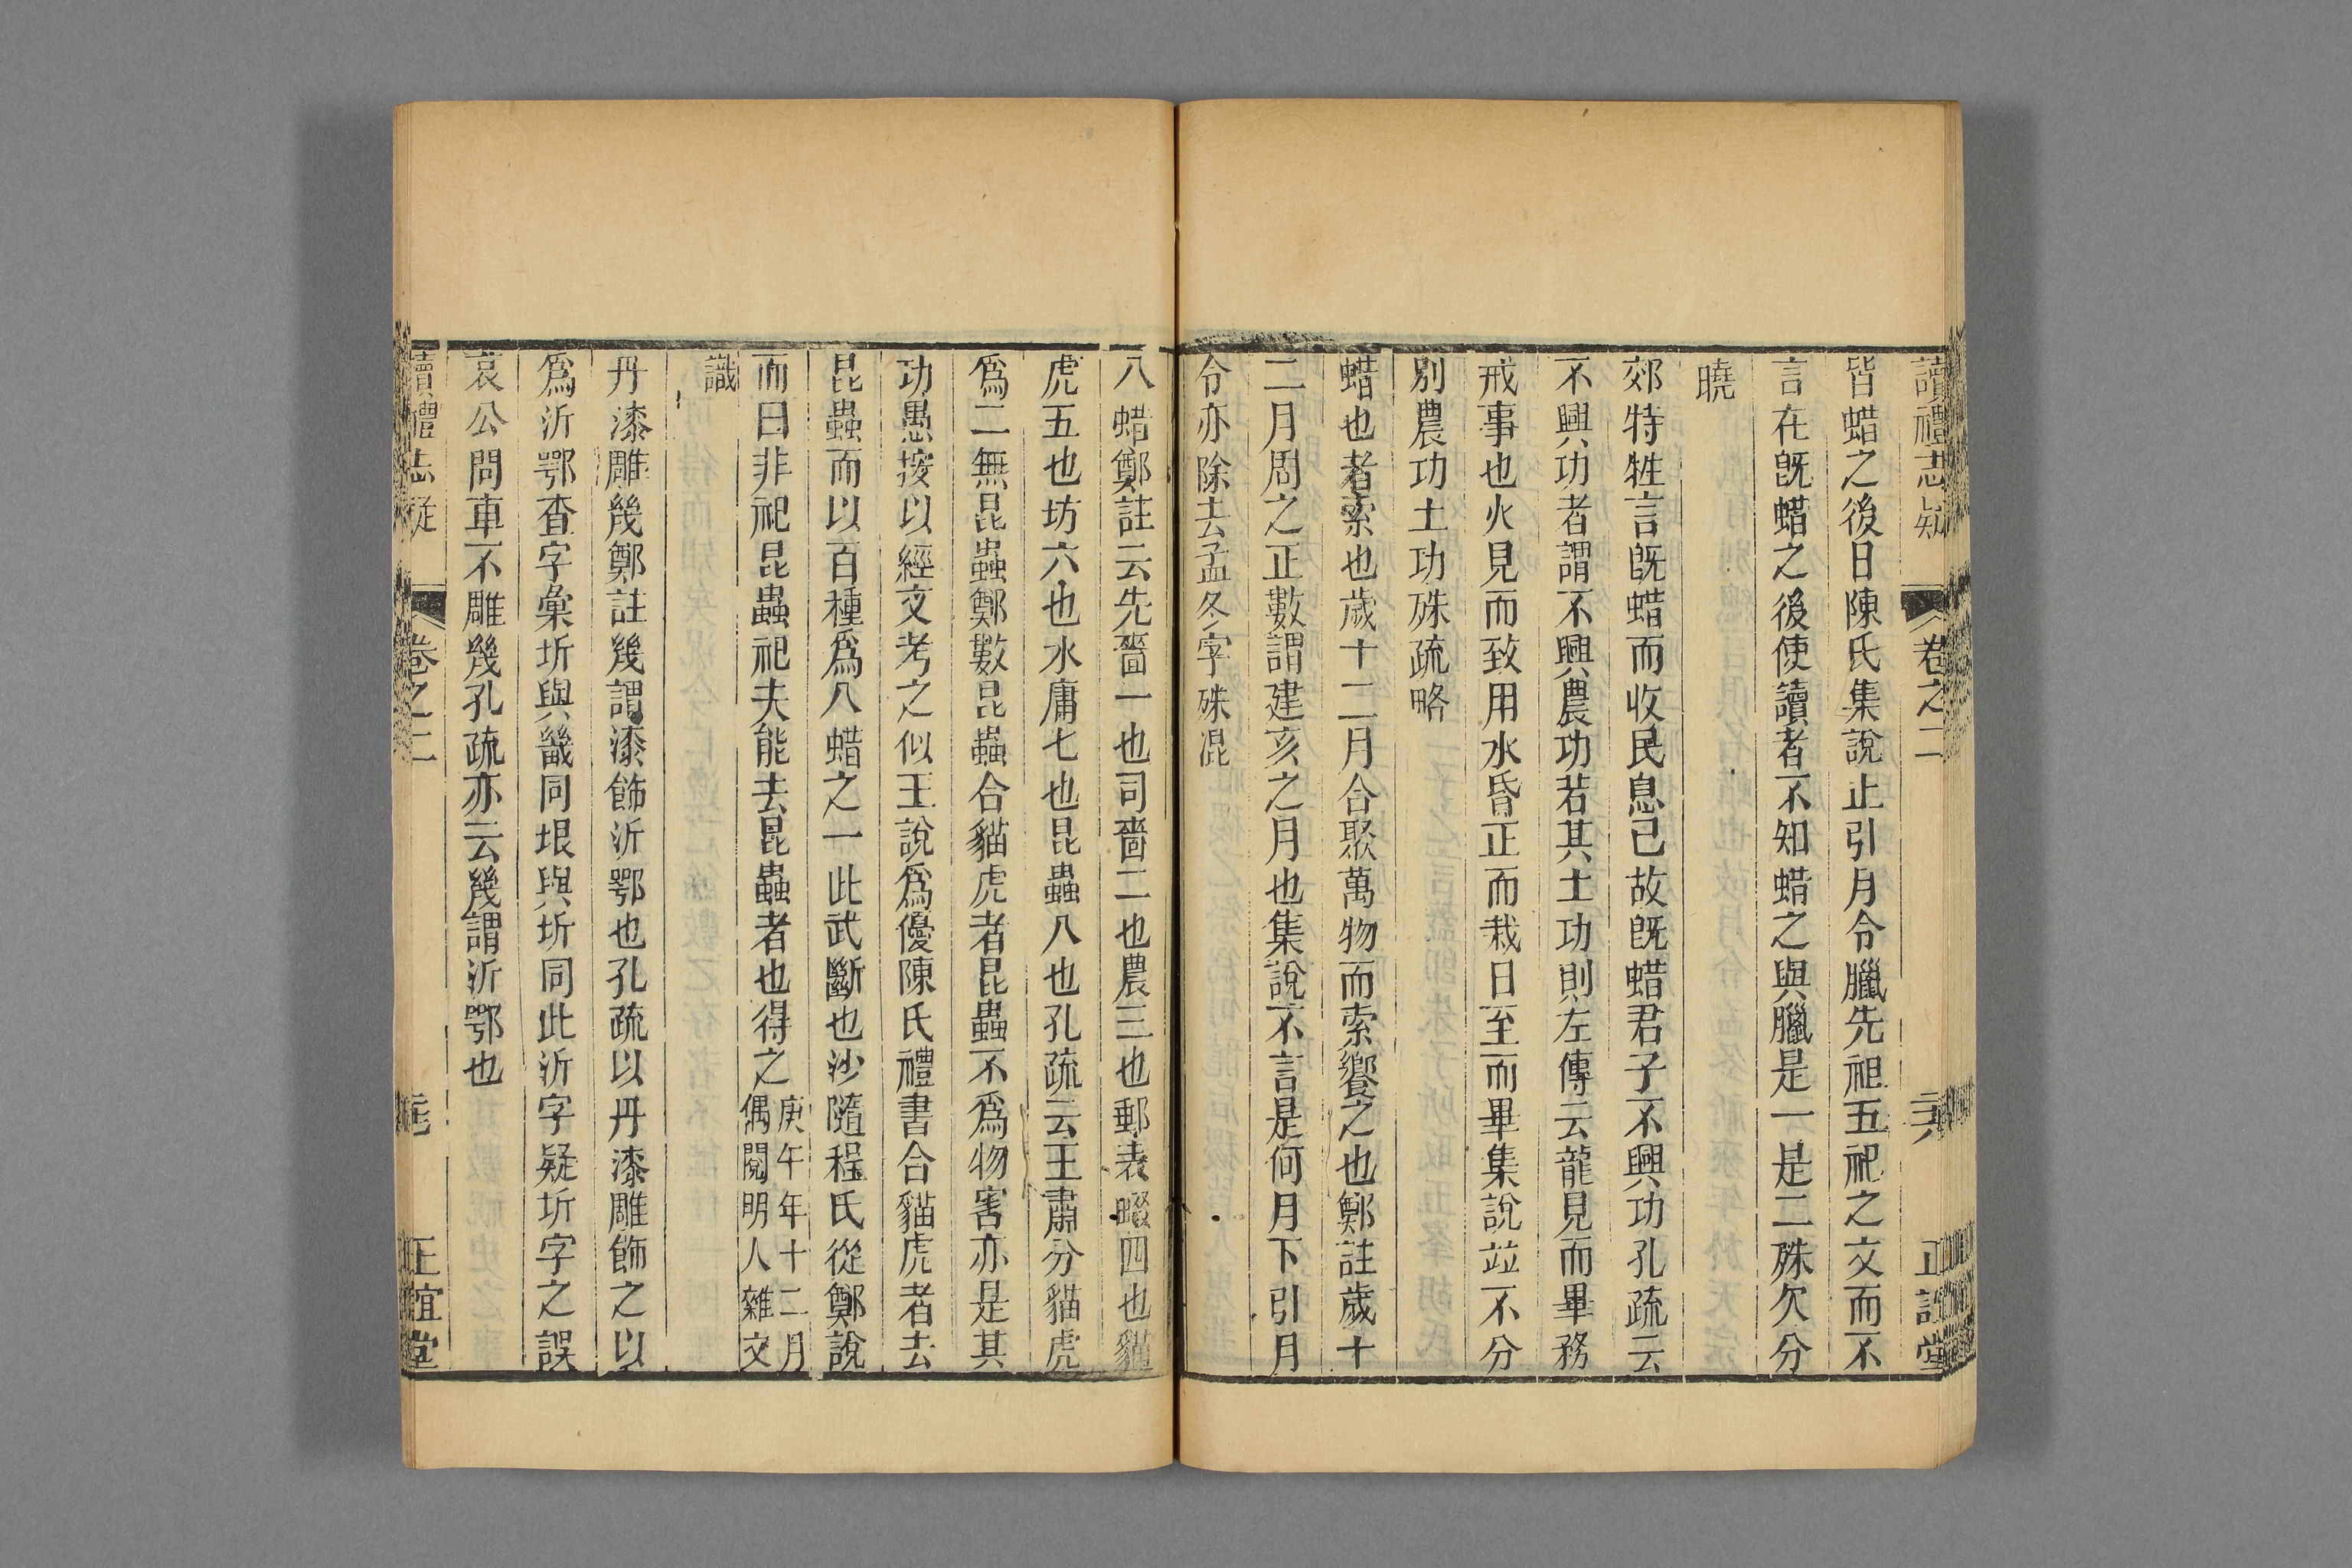 讀禮志疑 卷之二 正誼堂
皆蜡之後日陳氏集說止引月令臘先祖五祀之文而不
言在旣蜡之後使讀者不知蜡之與臘是一是二殊欠分
曉
郊特牲言旣蜡而收民息已故旣蜡君子不興功孔疏云
不興功者謂不興農功若其土功則左傳云龍見而畢務
戒事也火見而致用水昏正而栽日至而畢集說竝不分
別農功土功殊疏略
蜡也者索也歲十二月合聚萬物而索饗之也鄭註歲十
二月周之正數謂建亥之月也集說不言是何月下引月
令亦除去孟冬字殊混
八蜡鄭註云先嗇一也司嗇二也農三也郵表畷四也貓
虎五也坊六也水庸七也昆蟲八也孔疏云王肅分貓虎
爲二無昆蟲鄭數昆蟲合貓虎者昆蟲不爲物害亦是其
功愚按以經文考之似王說爲優陳氏禮書合貓虎者去
昆蟲而以百種爲八蜡之一此武斷也沙隨程氏從鄭說
而曰非祀昆蟲祀夫能去昆蟲者也得之庚午年十二月
偶閱明人雜文
識
丹漆雕幾鄭註幾謂漆飾沂鄂也孔疏以丹漆雕飾之以
爲沂鄂查字彙圻與畿同垠與圻同此沂字疑圻字之誤
哀公問車不雕幾孔疏亦云幾謂沂鄂也
讀禮志疑 卷之二 正誼堂